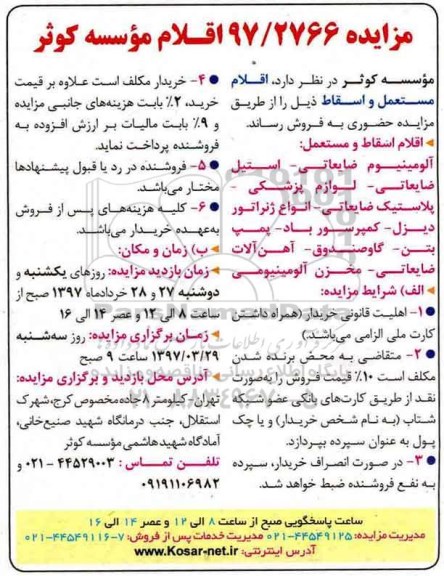 مزایده ۹۷/۲۷۶۶ اقلام مؤسسه کوثر
مؤسسه کوثر در نظر دارد، اقلام
مستعمل و اسقاط ذیل را از طریق
مزایده حضوری به فروش رساند.
اقلام اسقاط و مستعمل:
آلومینیوم ضایعاتی- استیل
ضایعاتی- لوازم پزشکی -
پلاستیک ضایعاتی- انواع ژنراتور
دیزل- کمپرسور باد- پمپ
بتن- گاوصندوق- آهن‌آلات
ضایعاتی- مخزن آلومینیومی
الف) شرایط مزایده:
۱- اهلیت قانونی خریدار (همراه داشتن
کارت ملی الزامی می‌باشد.)
۲- متقاضی به محض برنده شدن
مکلف است ۱۰٪ قیمت فروش را به‌صورت
نقد از طریق کارت‌های بانکی عضو شبکه
شتاب (به نام شخص خریدار) و یا چک
پول به عنوان سپرده بپردازد.
۳- در صورت انصراف خریدار، سپرده
به نفع فروشنده ضبط خواهد شد.
۴- خریدار مکلف است علاوه بر قیمت
خرید، ۲٪ بابت هزینه‌های جانبی مزایده
و ۹٪ بابت مالیات بر ارزش افزوده به
فروشنده پرداخت نماید.
۵- فروشنده در رد یا قبول پیشنهادها
مختار می‌باشد.
۶- کلیه هزینه‌های پس از فروش
به‌عهده خریدار می‌باشد.
ب) زمان و مکان:
زمان بازدید مزایده: روزهای یکشنبه و
دوشنبه ۲۷ و ۲۸ خردادماه ۱۳۹۷ صبح از
ساعت ۸ الی ۱۲ و عصر ۱۴ الی ۱۶
زمان برگزاری مزایده: روز سه‌شنبه
۱۳۹۷/۰۳/۲۹ ساعت ۹ صبح
آدرس محل بازدید و برگزاری مزایده:
تهران، کیلومتر ۸ جاده مخصوص کرج، شهرک
استقلال، جنب درمانگاه شهید صنیع‌خانی،
آمادگاه شهید هاشمی مؤسسه کوثر
تلفن تماس: ۴۴۵۲۹۰۰۳-۰۲۱ و
۰۹۱۹۱۱۰۶۹۸۲
ساعت پاسخگویی صبح از ساعت ۸ الی ۱۲ و عصر ۱۴ الی ۱۶
مدیریت مزایده: ۴۴۵۴۹۱۲۵-۰۲۱ مدیریت خدمات پس از فروش: ۷-۴۴۵۴۹۱۱۶-۰۲۱
آدرس اینترنتی: www.Kosar-net.ir